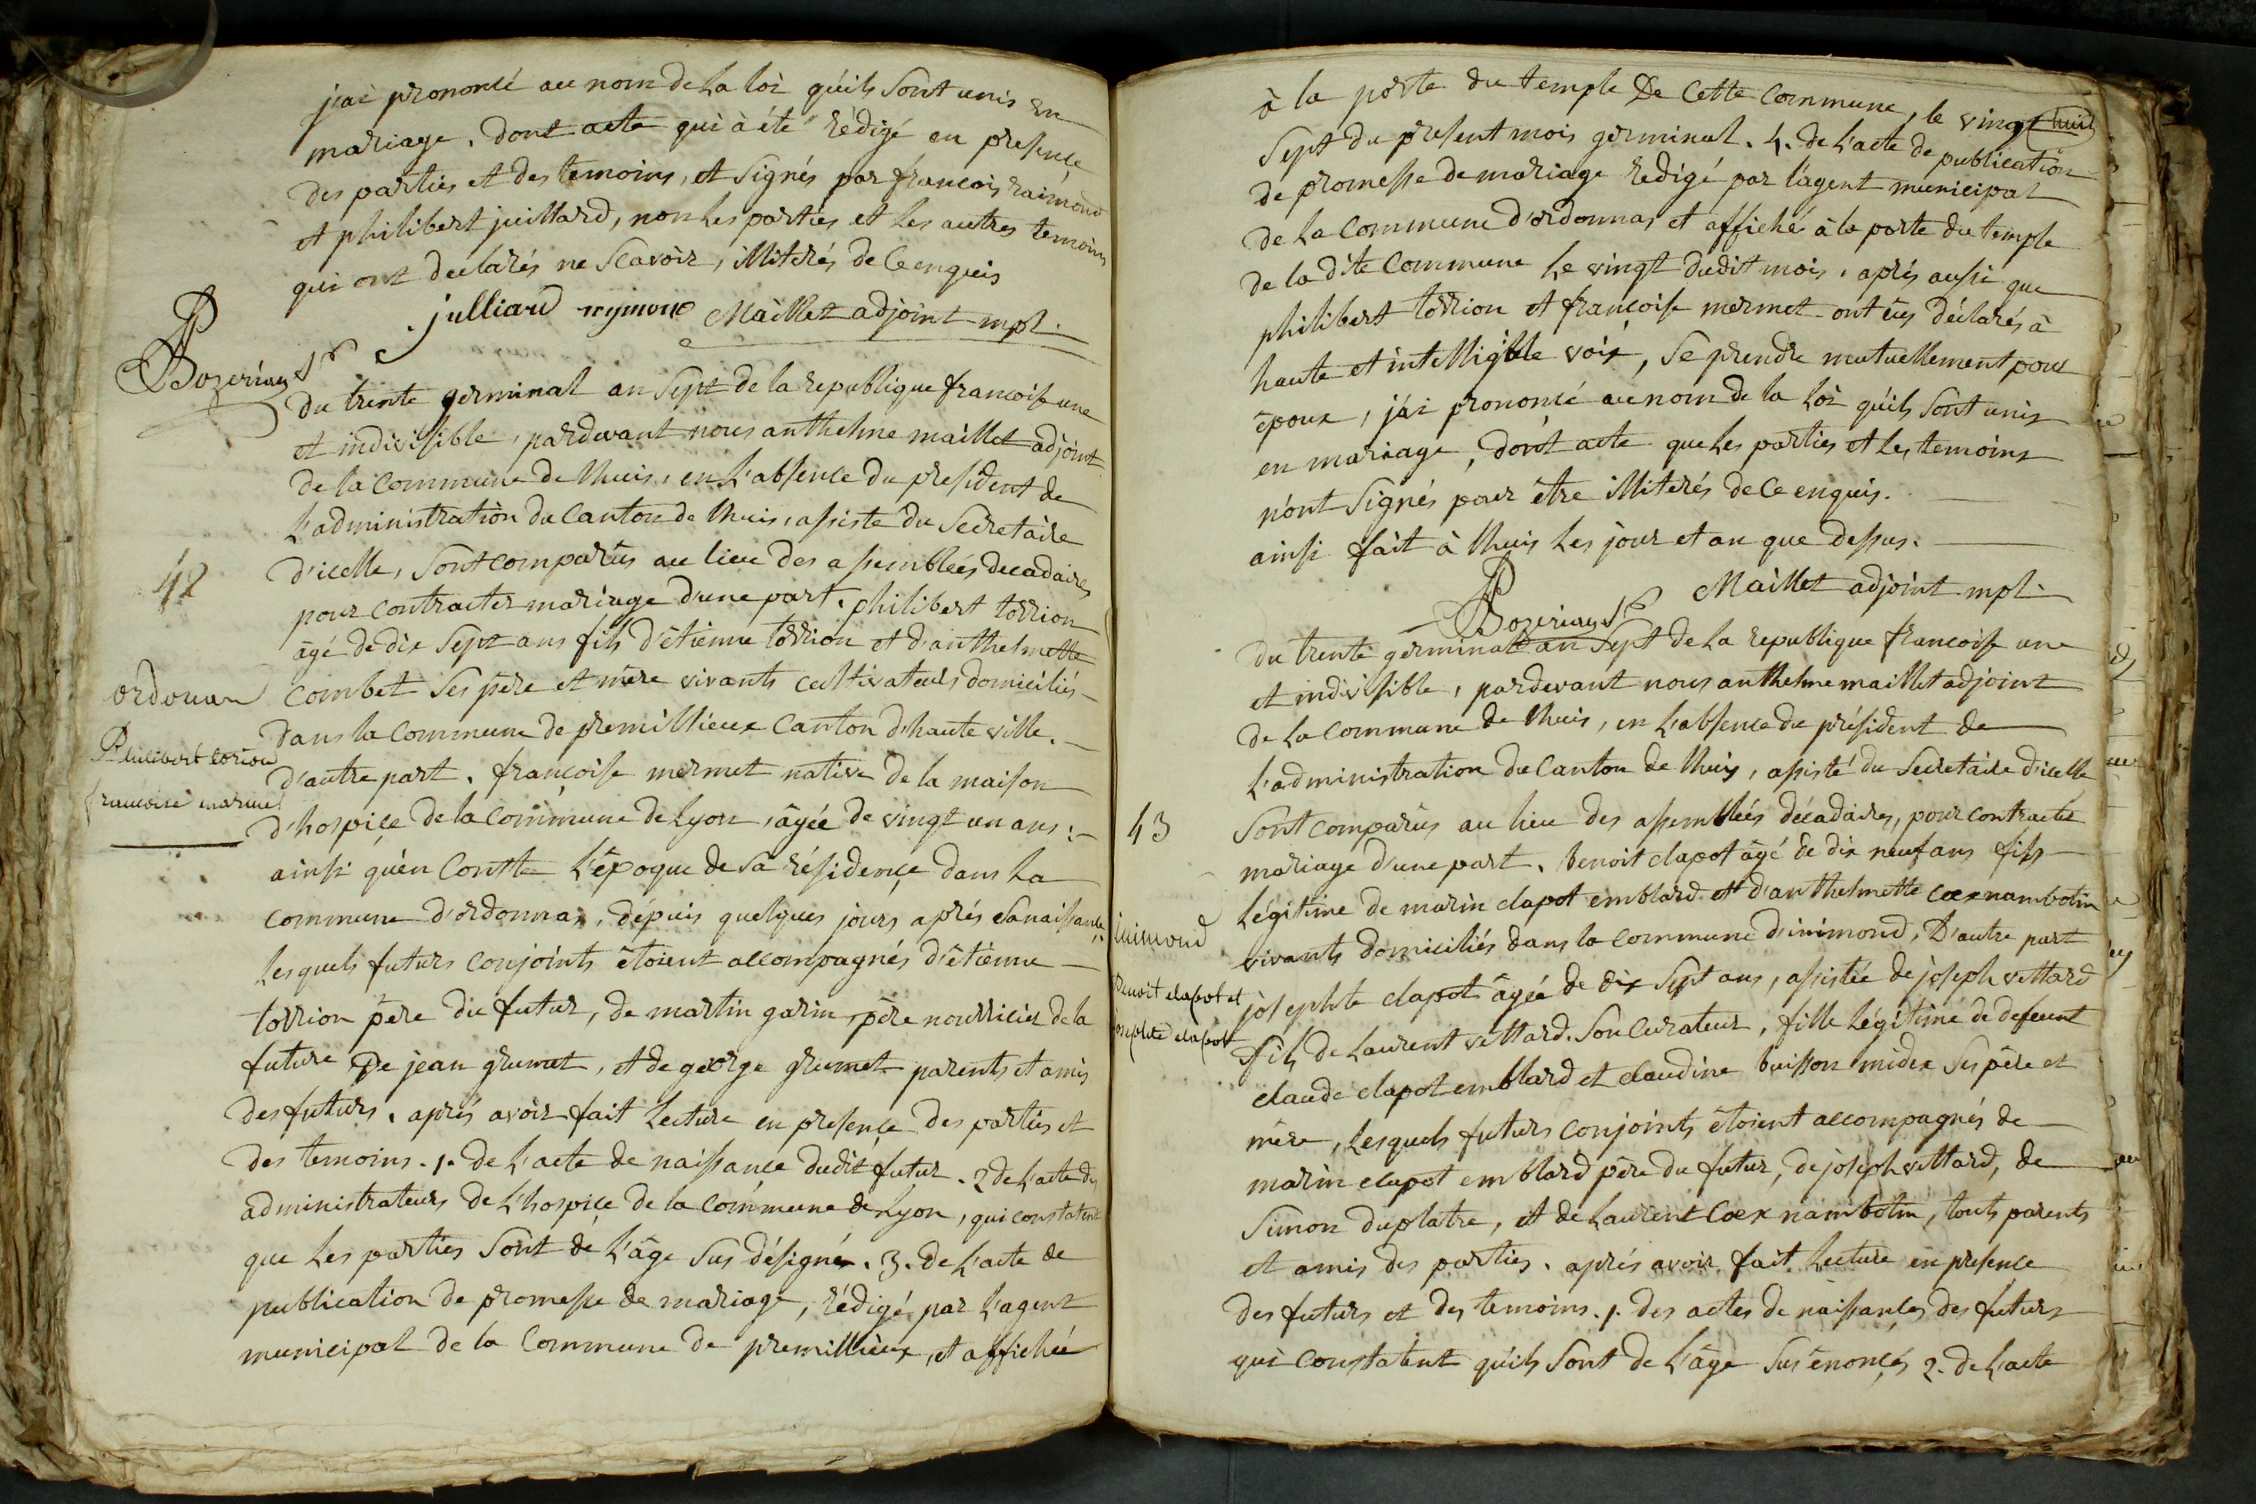 j'ai prononcé au nom de la loi qu'ils sont unis en
mariage. dont acte qui à été rédigé en presence
des parties et des temoins, et signés par francois raimond
et philibert juillard, non les parties et les autres temoins
qui ont declarés ne scavoir, illiterés de ce enquis
julliard reymond Maillet adjoint mpl.
Bozerian Sre
du trente germinal an sept de la republique francoise une
et indivisible, pardevant nous anthelme maillet adjoint
de la commune de lhuis, en l'absence du president de
l'administration du canton de lhuis, assisté du secretaire
42
d'icelle, sont comparus au lieu des assemblées decadaires
pour contracter mariage d'une part. philibert torrion
âgé de dix sept ans fils d'étienne torrion et d'anthelmette
ordonan
combet ses père et mère vivants cultivateurs domiciliés
dans la commune de premillieux canton d'haute ville.
Philibert torion
d'autre part. françoise mermet native de la maison
francoise marmet
d'hospice de la commune de Lyon, âgée de vingt un ans;
ainsi qu'en conste l'époque de sa résidence dans la
commune d'ordonnas, dépuis quelques jours aprés sa naissance,
lesquels futurs conjoints étoient accompagnés d'étienne
torrion père du futur, de martin garin, père nourricier de la
future De jean grumet, et de george grumet parents et amis
des futurs. aprés avoir fait lecture en presence des parties et
des temoins. 1. de l'acte de naissance dudit futur. 2 de l'acte des
administrateurs de l'hospice de la commune de Lyon, qui constatent
que les parties sont de l'âge sus désigné. 3. de l'acte de
publication de promesse de mariage, rédigé par l'agent
municipal de la commune de premillieux, et affichée
à la porte du temple De Cette Commune, le vingt huit
sept du present mois germinal. 4. de l'acte de publication
de promesse de mariage redigé par l'agent municipal
de la commune d'ordonnas et affiché à la porte du temple
de la dite commune le vingt dudit mois. aprés aussi que
philibert torrion et françoise mermet ont eus déclarés à
haute et intelligible voix, se prendre mutuellement pour
époux, j'ai prononcé au nom de la loi qu'ils sont unis
en mariage, dont acte que les parties et les temoins
n'ont signés pour être illiterés de ce enquis.
ainsi fait à lhuis les jour et an que dessus.
Bozerian Sre Maillet adjoint mpl.
du trente germinal an sept de la republique francoise une
et indivisible, pardevant nous anthelme maillet adjoint
de la commune de lhuis, en l'absence du président de
l'administration du canton de lhuis, assisté du secretaire d'icelle
43
sont comparus au lieu des assemblées décadaires, pour contracter
mariage d'une part. benoit clapot âgé de dix neuf ans fils
légitime de marin clapot emblard et d'anthelmette coex nambotin
inimond
vivants domiciliés dans la commune d'inimond, D'autre part
benoit clapot et
josephte clapot âgée de dix sept ans, assistée de joseph vettard
josephte clapot
fils de laurent vettard. son curateur, fille légitime de defeunt
claude clapot emblard et claudine buisson midex ses père et
mère, lesquels futurs conjoints étoient accompagnés de
marin clapot emblard père du futur, de joseph vettard, de
simon duplatre, et de laurent coex nambotin, touts parents
et amis des parties. aprés avoir fait lecture en presence
des futurs et des temoins. 1. des actes de naissances des futurs
qui constatent qu'ils sont de l'âge sus énoncés 2. de l'acte